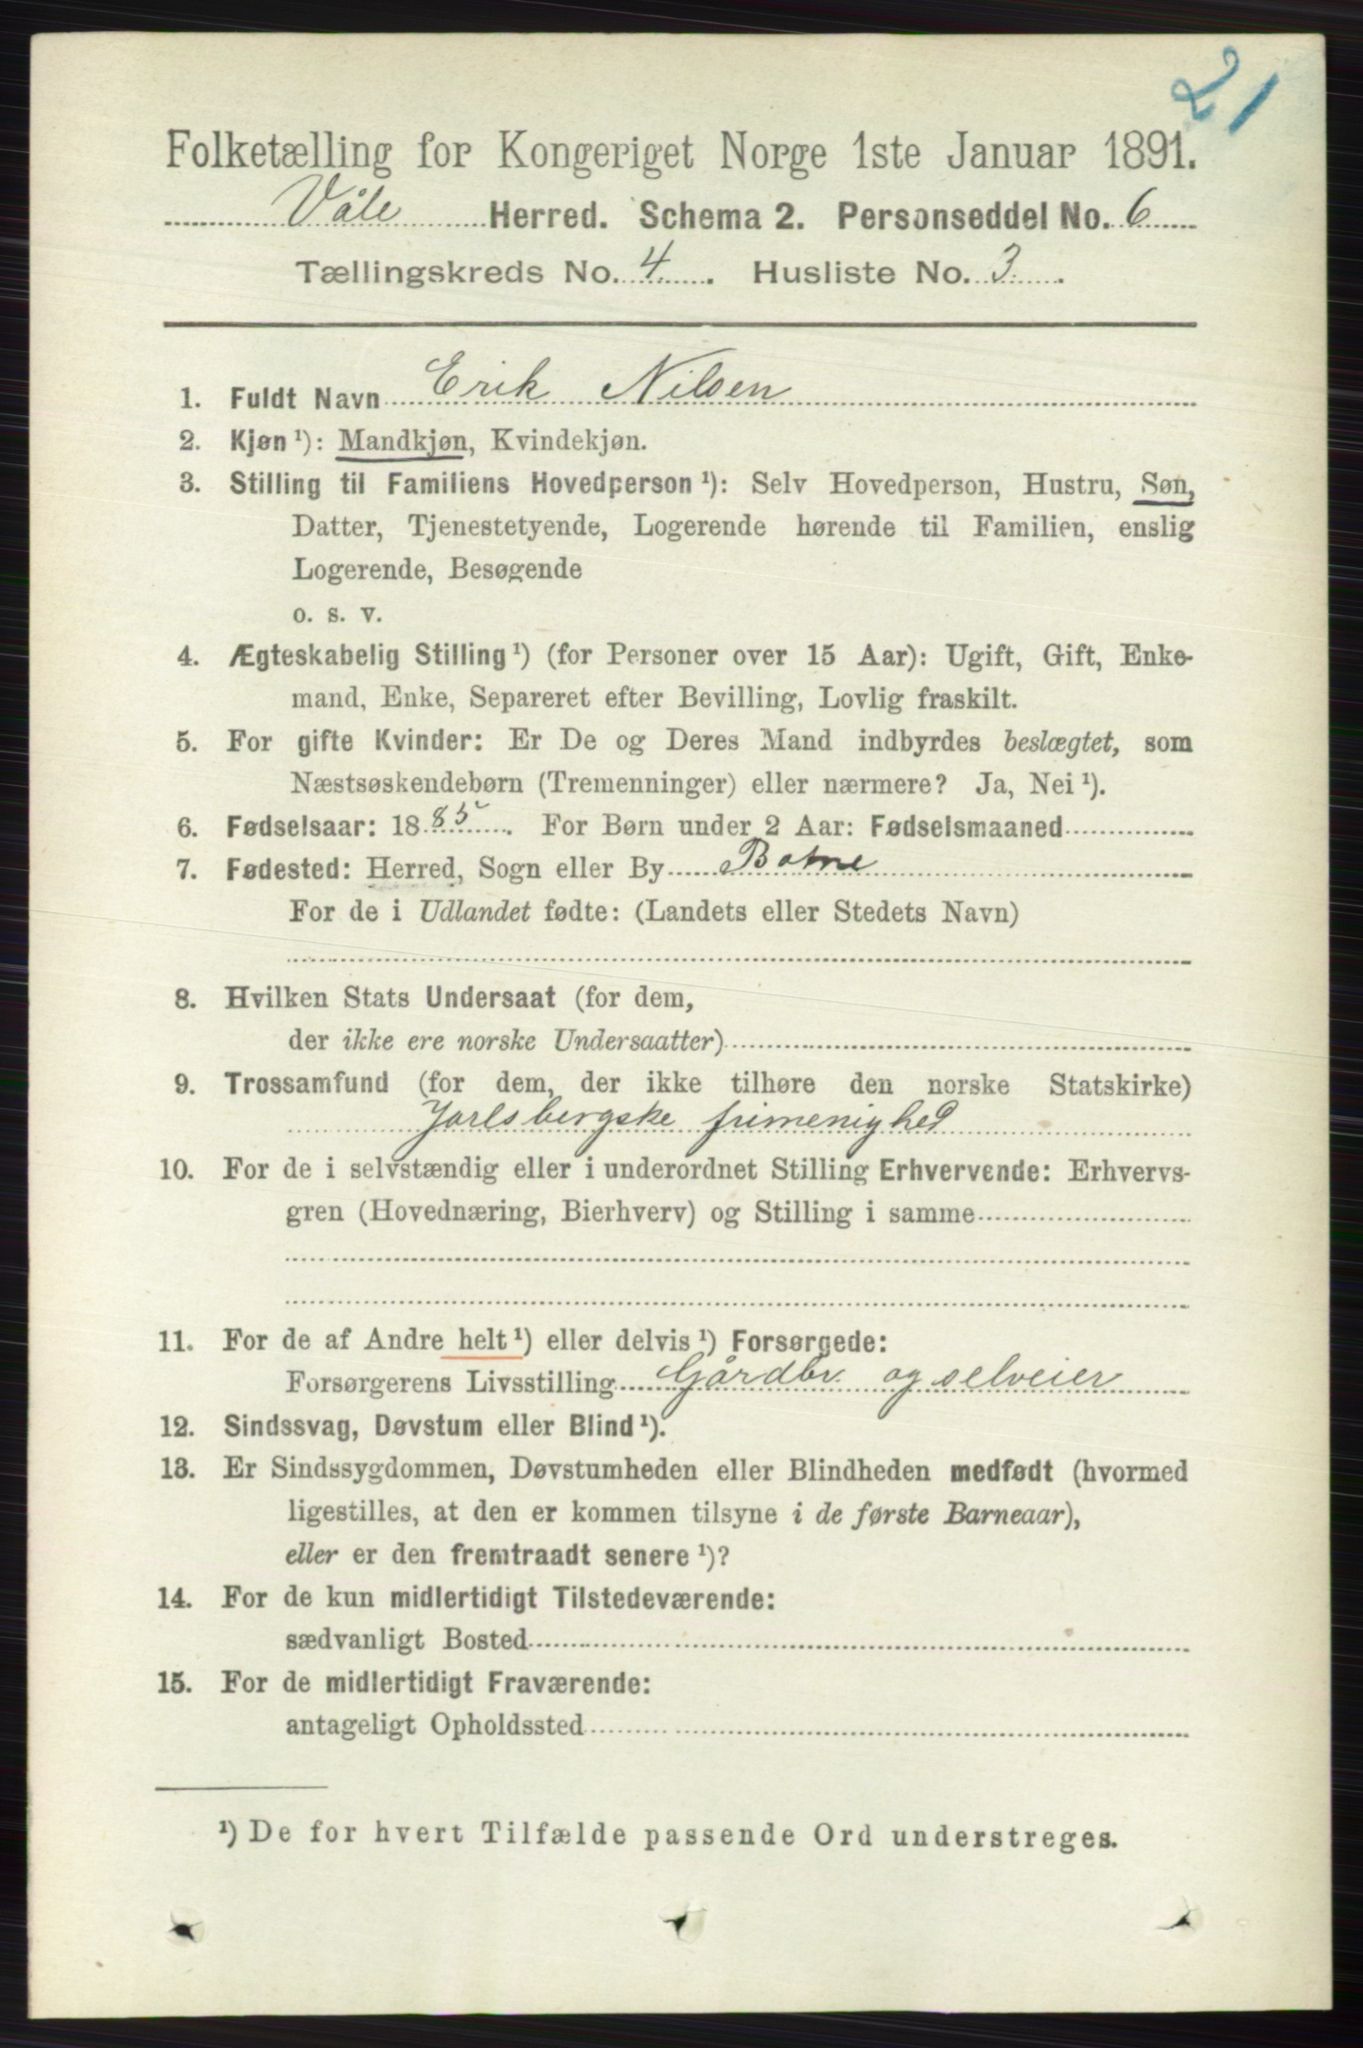 21
Folketælling for Kongeriget Norge 1ste Januar 1891.
Våle Herred. Schema 2. Personseddel No. 6
Tællingskreds No. 4. Husliste No. 3.
1. Fuldt Navn Erik Nilsen
2. Kjøn ¹): Mandkjøn, Kvindekjøn.
3. Stilling til Familiens Hovedperson ¹): Selv Hovedperson, Hustru, Søn,
Datter, Tjenestetyende, Logerende hørende til Familien, enslig
Logerende, Besøgende
o. s. v.
4. Ægteskabelig Stilling ¹) (for Personer over 15 Aar): Ugift, Gift, Enke-
mand, Enke, Separeret efter Bevilling, Lovlig fraskilt.
5. For gifte Kvinder: Er De og Deres Mand indbyrdes beslægtet, som
Næstsøskendebørn (Tremenninger) eller nærmere? Ja, Nei ¹).
6. Fødselsaar: 1885. For Børn under 2 Aar: Fødselsmaaned
7. Fødested: Herred, Sogn eller By Botne
For de i Udlandet fødte: (Landets eller Stedets Navn)
8. Hvilken Stats Undersaat (for dem,
der ikke ere norske Undersaatter)
9. Trossamfund (for dem, der ikke tilhøre den norske Statskirke)
Jarlsbergske frimenighed
10. For de i selvstændig eller i underordnet Stilling Erhvervende: Erhvervs-
gren (Hovednæring, Bierhverv) og Stilling i samme
11. For de af Andre helt ¹) eller delvis ¹) Forsørgede:
Forsørgerens Livsstilling Gårdbr. og selveier
12. Sindssvag, Døvstum eller Blind ¹).
13. Er Sindssygdommen, Døvstumheden eller Blindheden medfødt (hvormed
ligestilles, at den er kommen tilsyne i de første Barneaar),
eller er den fremtraadt senere ¹)?
14. For de kun midlertidigt Tilstedeværende:
sædvanligt Bosted
15. For de midlertidigt Fraværende:
antageligt Opholdssted
¹) De for hvert Tilfælde passende Ord understreges.